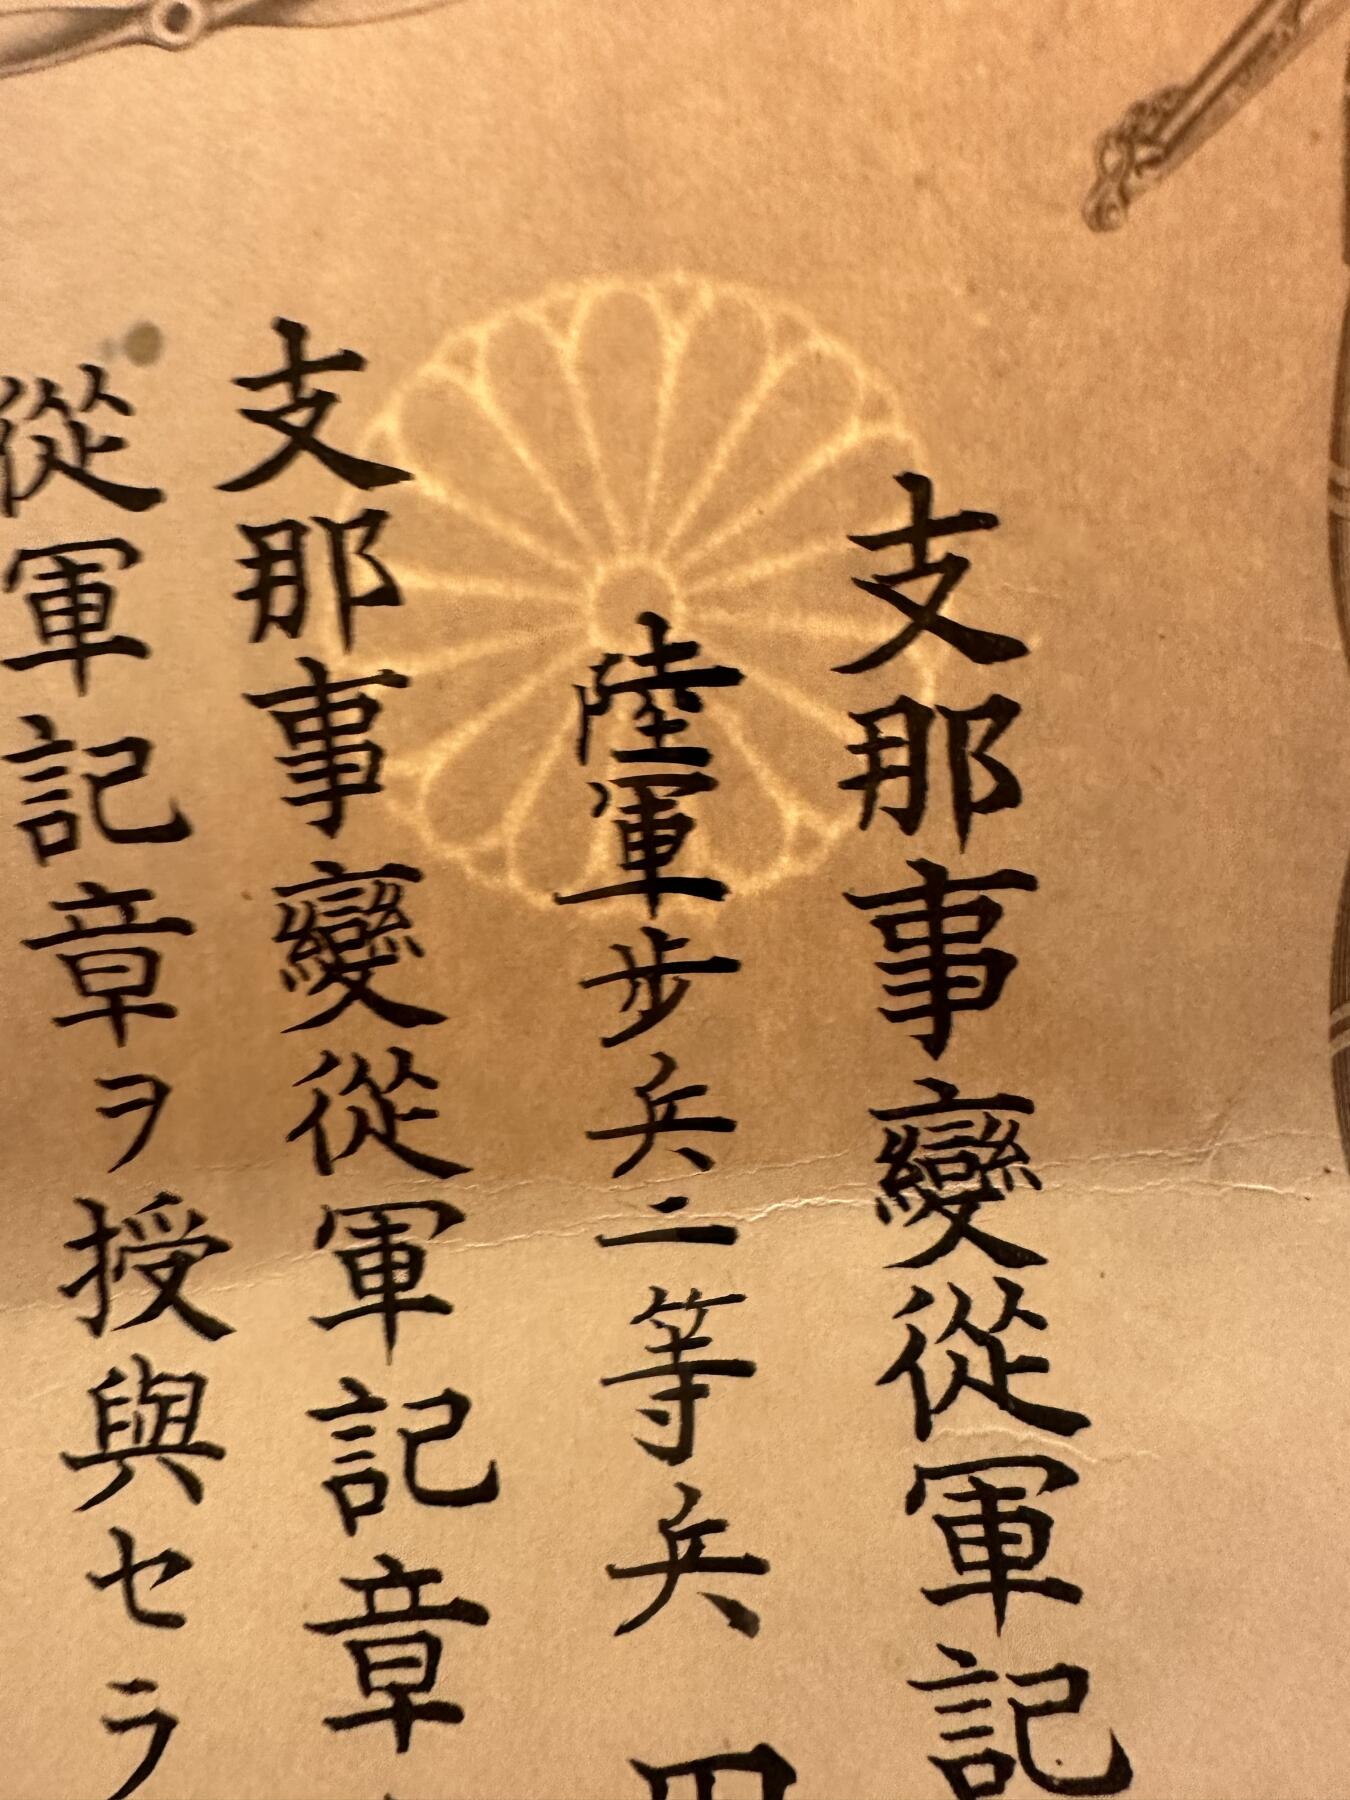 支那事變從軍記
陸軍步兵二等兵
支那事變從軍記章
從軍記章ヲ授與セラ